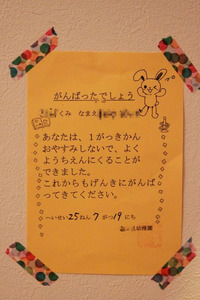 がんばったでしょう
くみ なまえ
あなたは、1がっきかん
おやすみしないで、よく
ようちえんにくることが
できました。
これからもげんきにがんば
ってきてください。
へいせい25ねん7がつ19にち
幼稚園